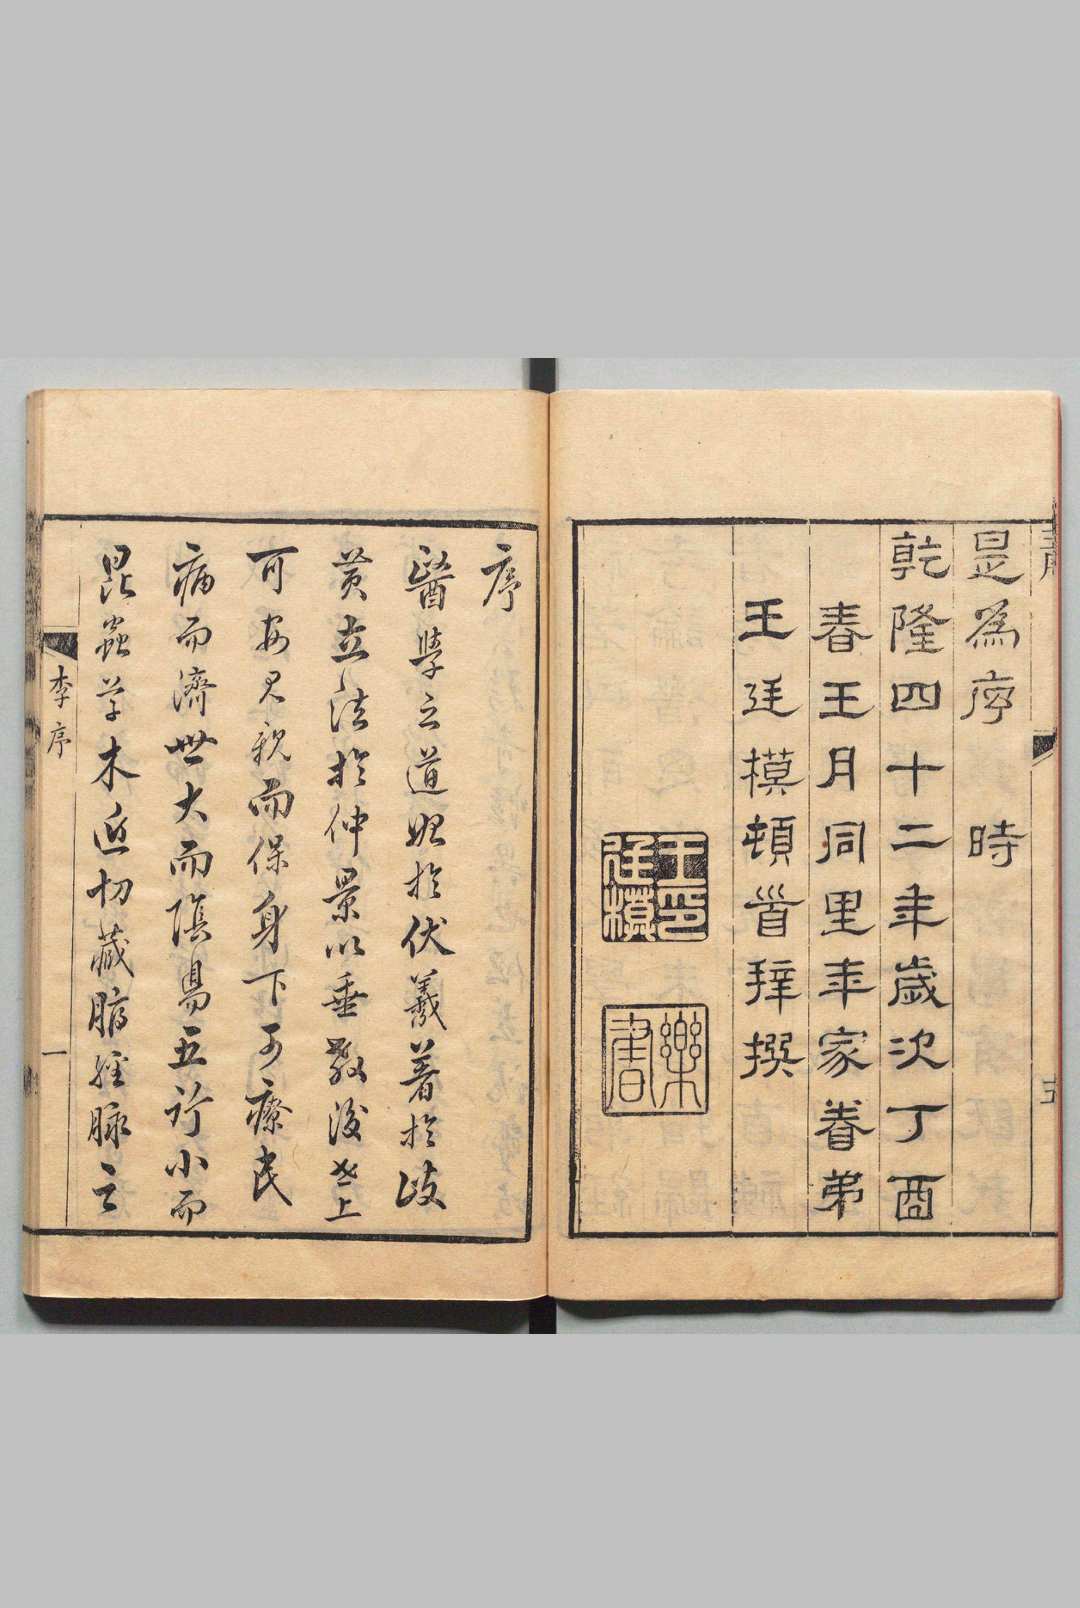 是為序時
乾隆四十二年歲次丁酉
春王月同里年家眷弟
王廷模頓首拜撰
王印廷模
樂書
五
序
醫學之道始於伏羲著於歧
黃立法於仲景以垂教後世上
可安君親而保身下可療民
病而濟世大而陰陽五行小而
昆蟲草木近切藏腑經脉之
李序
一